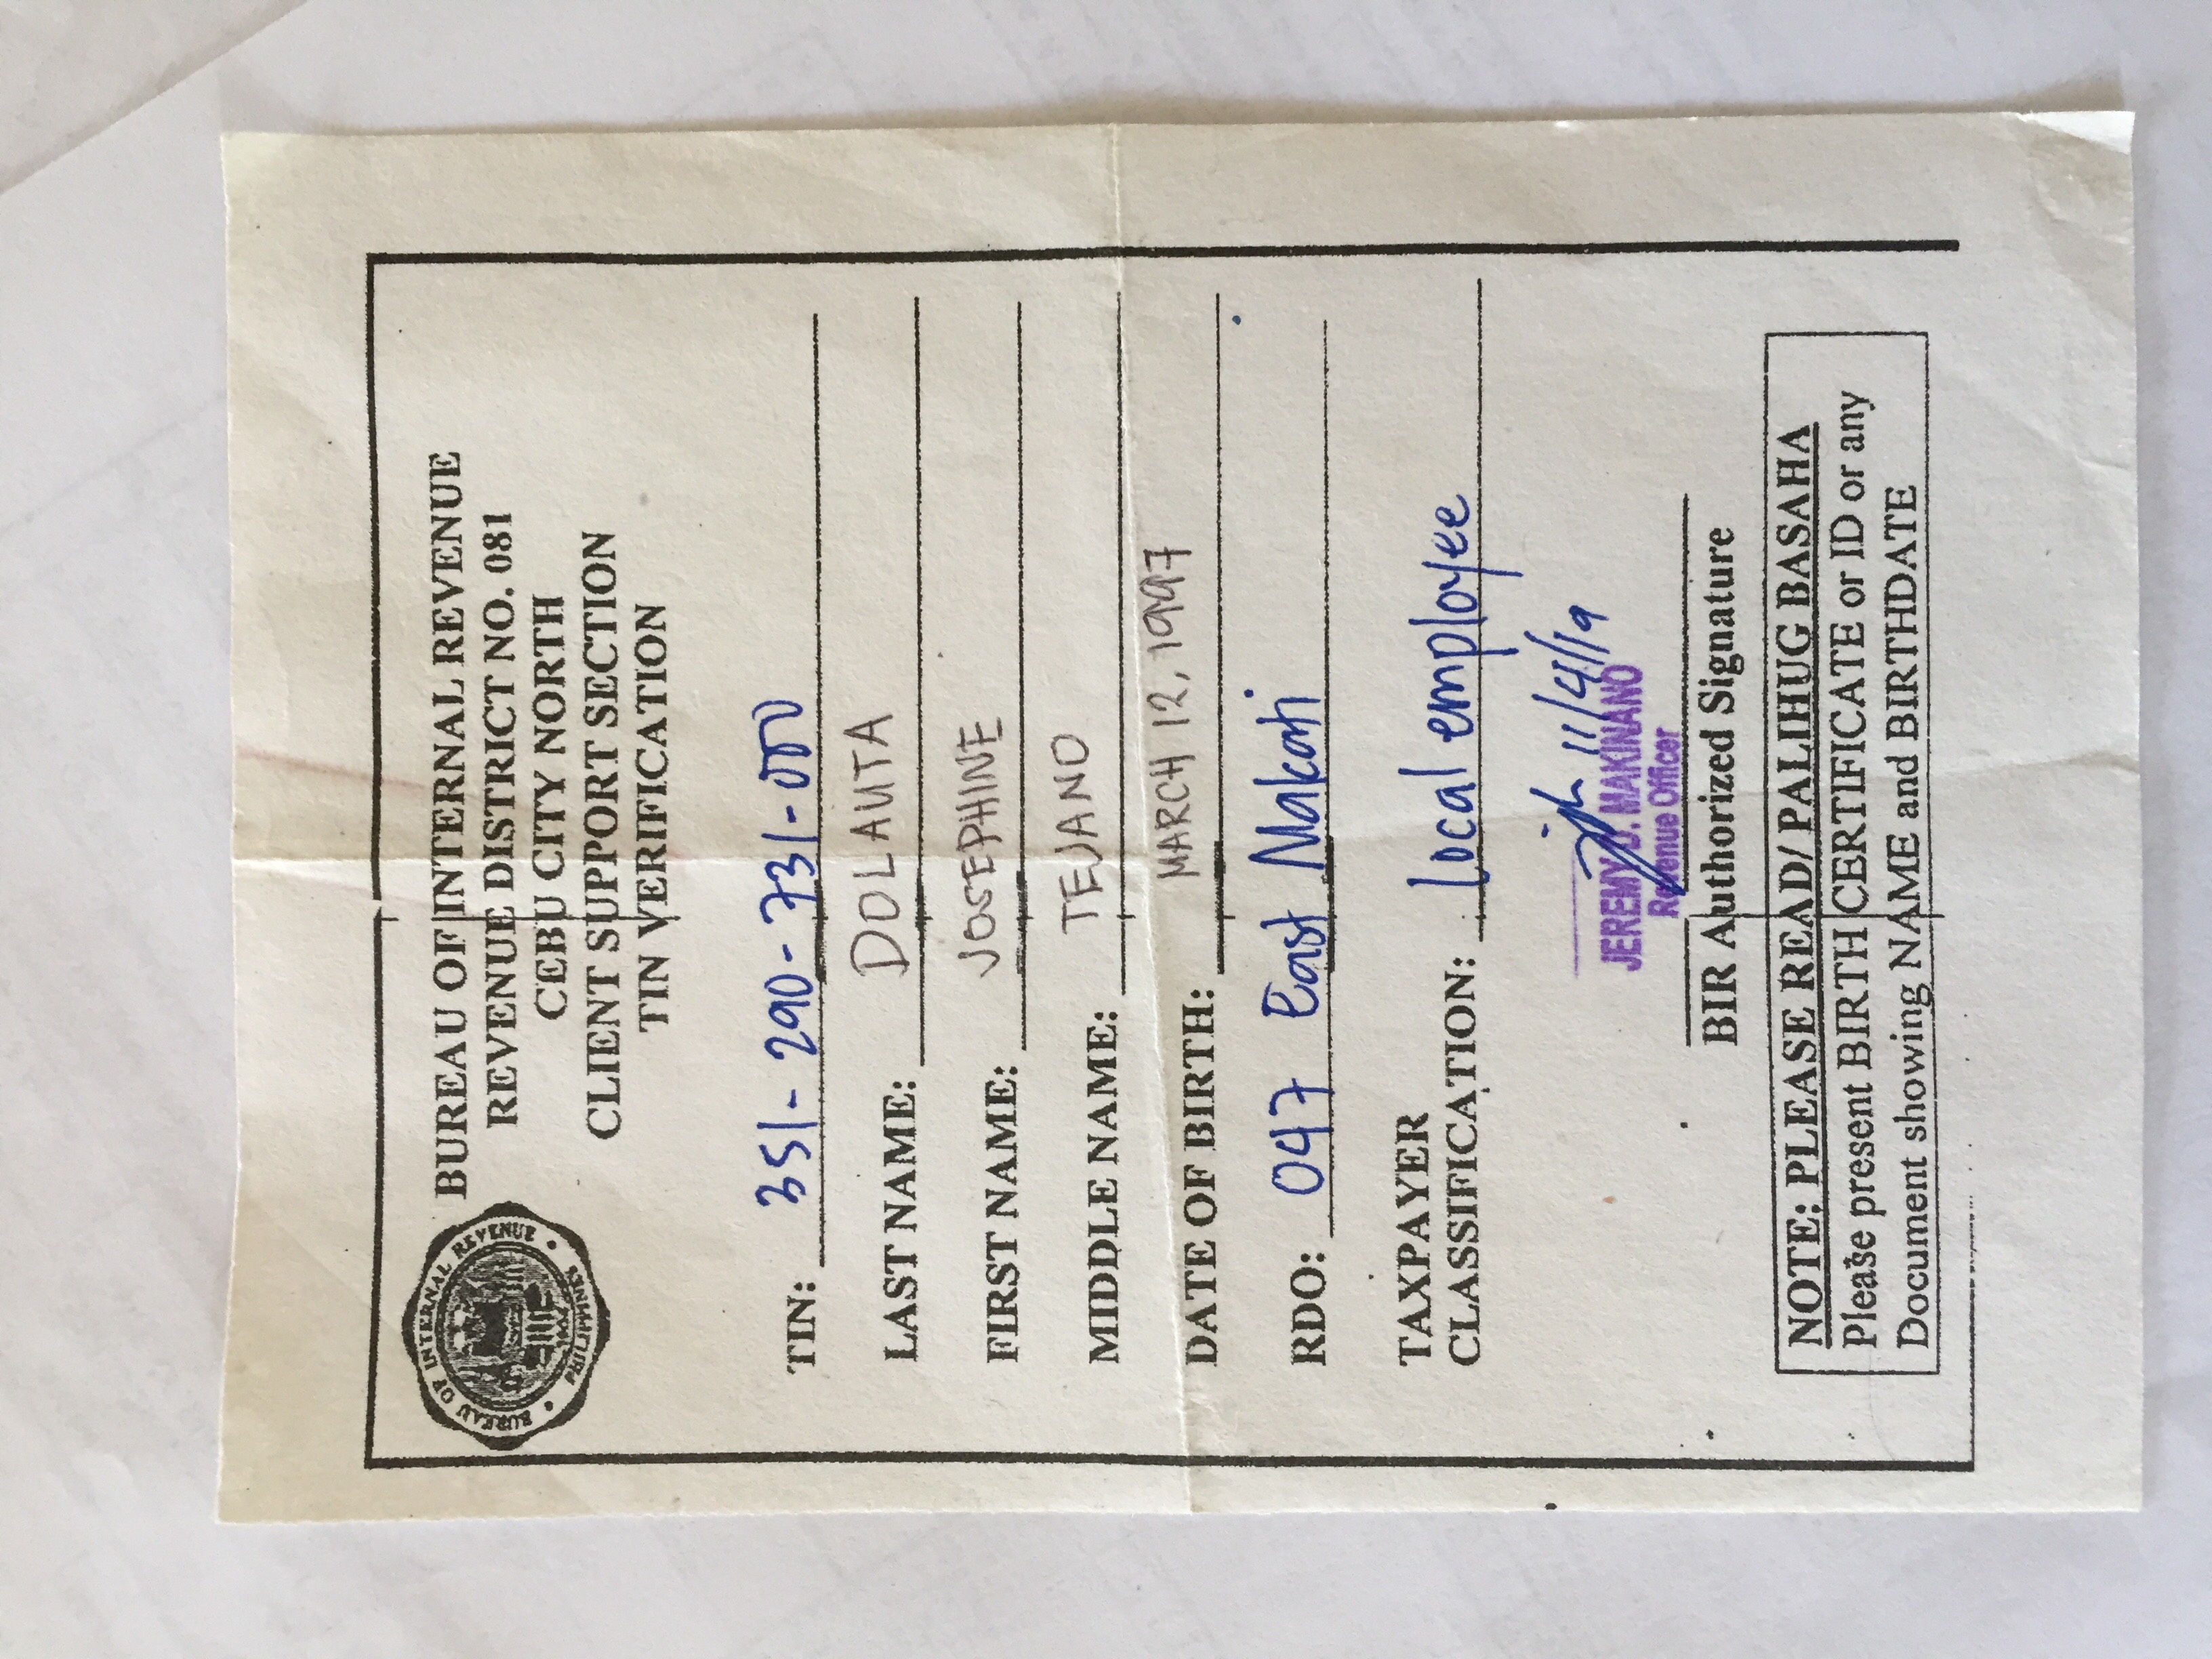 BUREAU OF INTERNAL REVENUE
REVENUE DISTRICT NO. 081
CEBU CITY NORTH
CLIENT SUPPORT SECTION
TIN VERIFICATION
BUREAU OF INTERNAL REVENUE • PHILIPPINES •
TIN: 351-290-731-000
LAST NAME: DOLAUTA
FIRST NAME: JOSEPHINE
MIDDLE NAME: TEJANO
DATE OF BIRTH: MARCH 12, 1997
RDO: 047 East Makati
TAXPAYER
CLASSIFICATION: Local employee
11/4/19
JEREMY D. MAKINANO
Revenue Officer
BIR Authorized Signature
NOTE: PLEASE READ/ PALIHUG BASAHA
Please present BIRTH CERTIFICATE or ID or any
Document showing NAME and BIRTHDATE